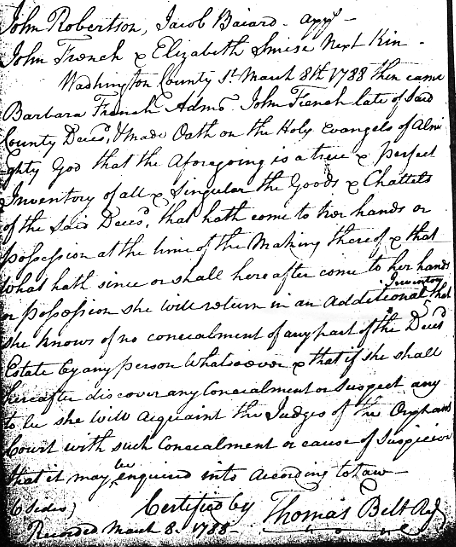 John Robertson, Jacob Baiard - apprs -
John French & Elizabeth Smise Next Kin -
Washington County Sct March 8th 1788 then came
Barbara French Admx John French late of said
County Decd, & Made Oath on the Holy evangels of Almi
ghty God that the Aforegoing is a true & Perfect
Inventory of all & Singular the Goods & Chattels
of the Said Decd, that hath come to her hands or
possession at the time of the Making thereof & that
what hath since or shall hereafter come to her hands
or possession she will return in an Additional Inventory, that
she knows of no concealment of any part of the Decds
Estate by any person Whatsoever & that if she shall
hereafter discover any Concealment or Suspect any
to be she will Acquaint the Judges of the Orphans
Court with such Concealment or cause of Suspicion
that it may be enquired into According to Law -
Certified by Thomas Belt Regr
(6 sides)
Recorded March 8. 1788